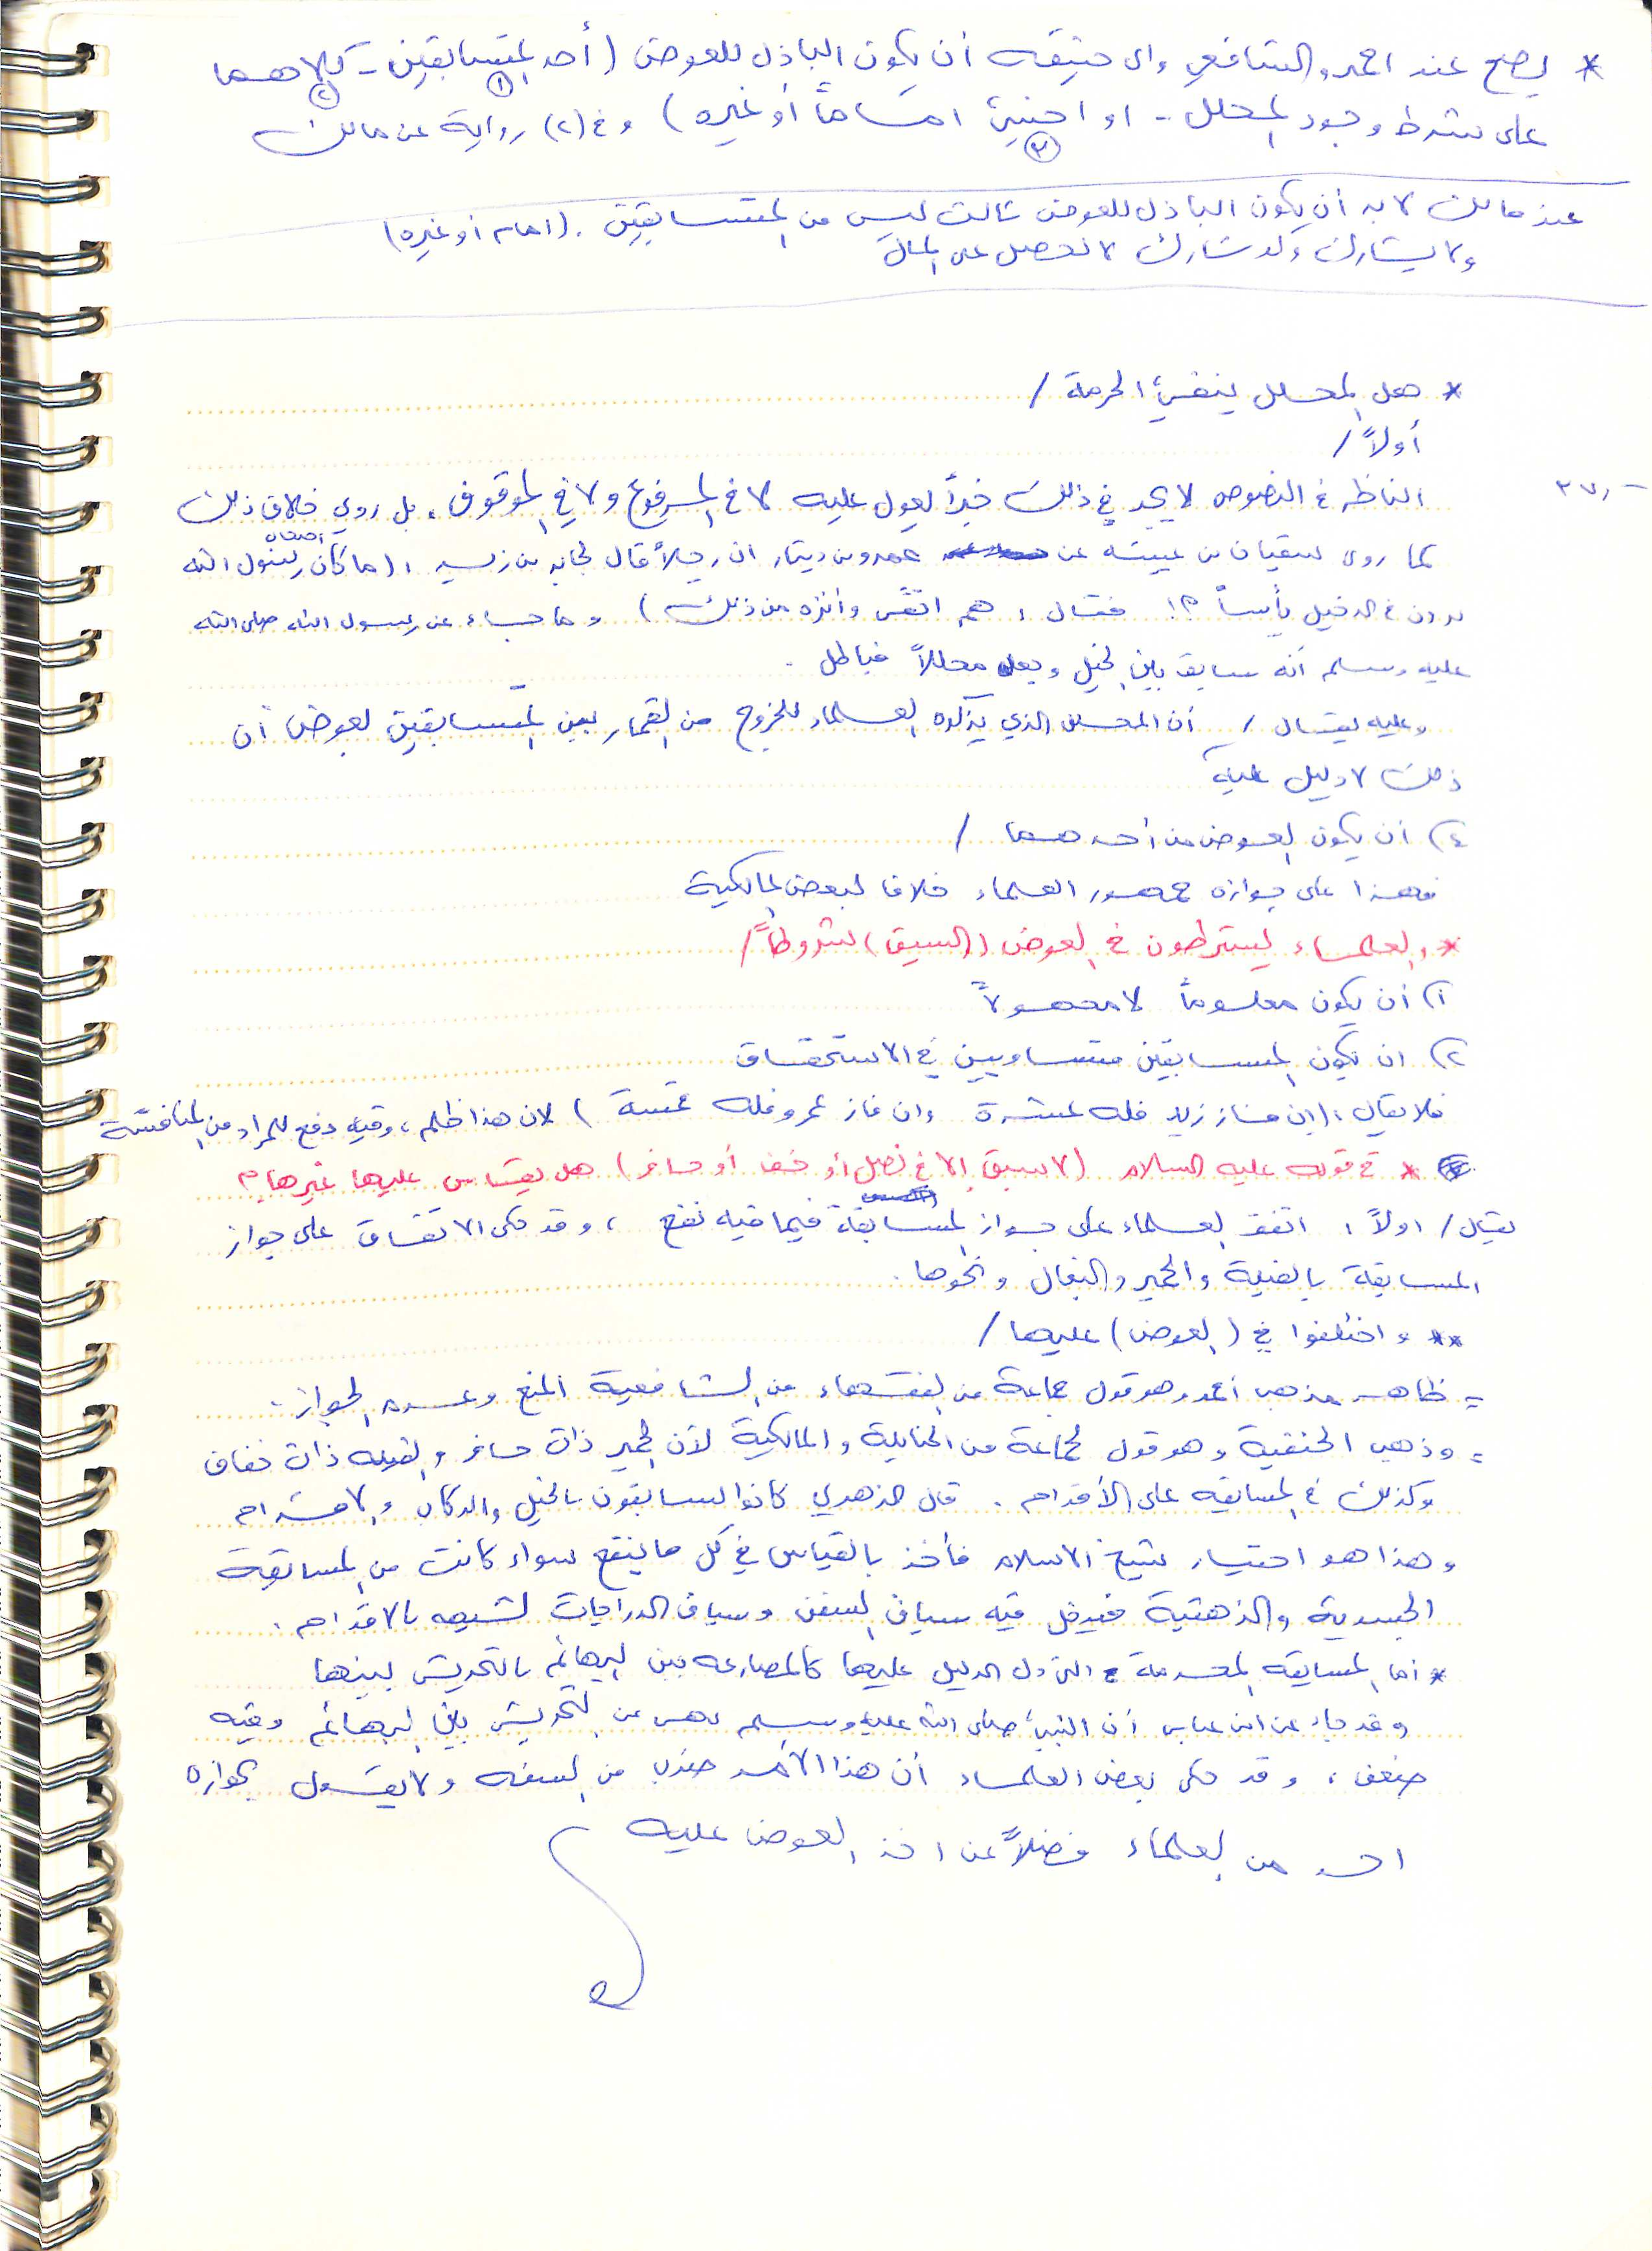 * يصح عند احمد والشافعي وابي حنيفه أن يكون الباذل للعوض (أحد المتسابقين - كلاهما
١ ٢
على شرط وجود المحلل - او اجنبيٌ اماماً أو غيره) وفي (٢) رواية عن مالك
٣
عند مالك لابد أن يكون الباذل للعوض ثالث ليس من المتسابقين . (امام أو غيره)
ولا يشارك ولو شارك لا تحصل على المال
* هل المحلل ينفي الحرمة /
أولاً /
٢٧٠
الناظر في النصوص لا يجد في ذلك خبراً يعول عليه لا في المرفوع ولا في الموقوف ، بل روي خلاف ذلك
كما روى سفيان بن عيينه عن عمرو بن دينار ان رجلاً قال لجابر بن زيد ، (ما كان رسول الله
اصحاب
يرون في الدخيل بأساً ؟! فقال : هم اتقى وأنزه من ذلك) وما جاء عن رسول الله صلى الله
عليه وسلم أنه سابق بين الخيل وجعل محللاً فباطل .
وعليه يقال / أن المحلل الذي يذكره العلماء للخروج من القمار بين المتسابقين بعوض أن
ذلك لا دليل عليه
٤) أن يكون العوض من أحدهما /
فهذا على جوازه جمهور العلماء خلافا لبعض المالكية
* والعلماء يشترطون في العوض (السبق) شروطاً /
١) أن يكون معلوماً لا مجهولاً
٢) ان يكون المسابقين متساويين في الاستحقاق
فلا يقال : (ان فاز زيد فله عشرة وان فاز عمرو فله خمسة) لان هذا ظلم ، وفيه دفع للمراد من المنافسة
* في قوله عليه السلام (لا سبق إلا في نصل أو خف أو حافر) هل يقاس عليها غيرها ؟
يقال / اولاً : اتفق العلماء على جواز المسابقة فيما فيه نفع ، وقد حكى الاتفاق على جواز
المسابقة بالفيلة والحمير والبغال ونحوها .
** واختلفوا في (العوض) عليها /
= ظاهر مذهب أحمد وهو قول جماعة من الفقهاء من الشافعية المنع وعدم الجواز .
= وذهب الحنفية وهو قول لجماعة من الحنابلة والمالكية لأن الحمير ذات حافر والفيله ذات خفاف
وكذلك في المسابقه على الأقدام . قال الزهري كانوا يسابقون بالخيل والركاب والاقدام
وهذا هو اختيار شيخ الاسلام فأخذ بالقياس في كل ما ينفع سواء كانت من المسابقة
الجسدية والذهنية فيدخل فيه سباق السفن وسباق الدراجات لشبهه بالاقدام .
* أما المسابقه المحرمة التي دل الدليل عليها كالمصارعه بين البهائم بالتحريش بينها
وقد جاء عن ابن عباس أن النبي صلى الله عليه وسلم نهى عن التحريش بين البهائم وفيه
ضعف ، وقد حكى بعض العلماء أن هذا الأمر ضرب من السفه ولا يقول بجوازه
احد من العلماء فضلاً عن اخذ العوض عليه